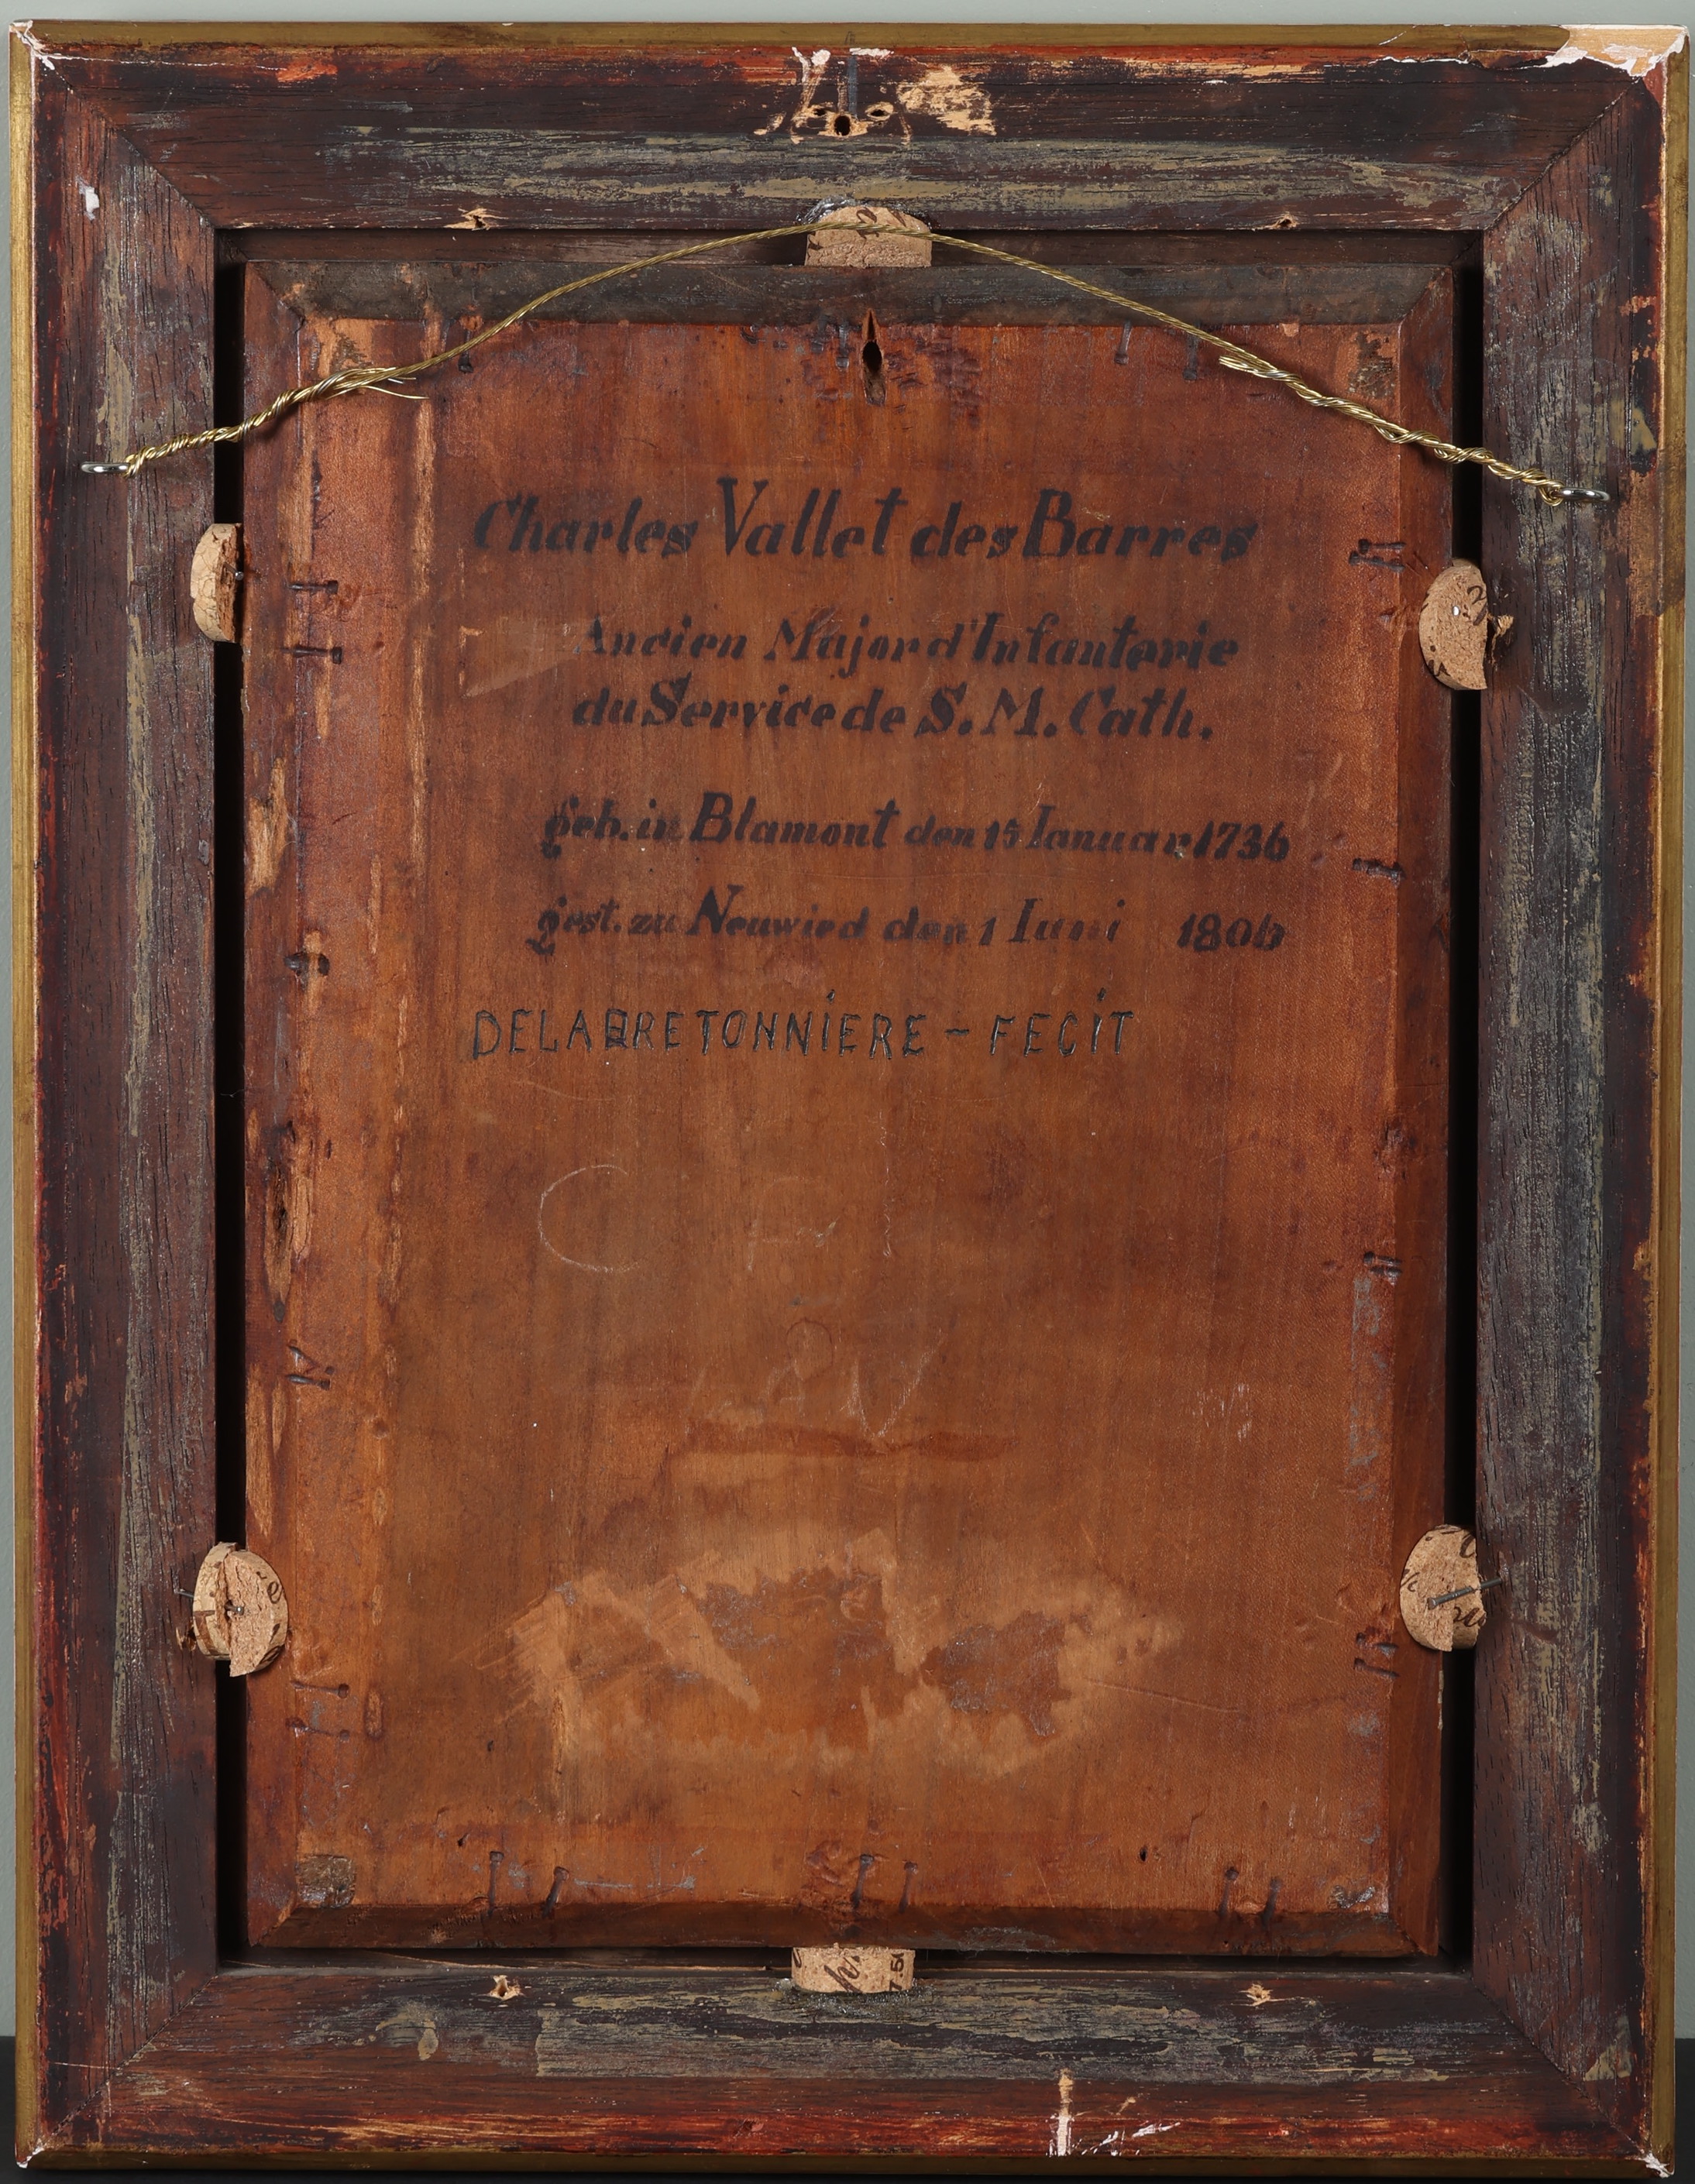 Charles Vallet des Barres
Ancien Major d'Infanterie
du Service de S. M. Cath.
geb. in Blamont den 15 Ianuar 1736
gest. zu Neuwied den 1 Iuni 1806
DELABRETONNIERE - FECIT